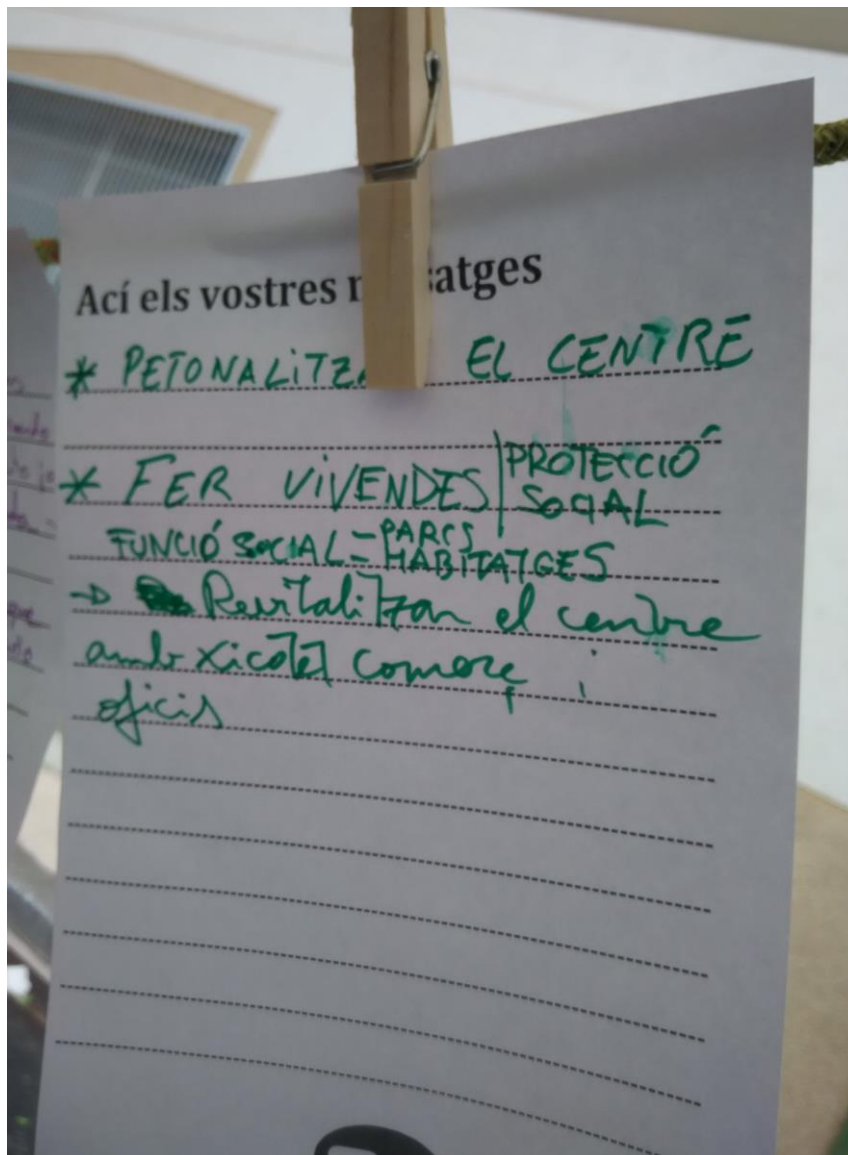 Ací els vostres satges
* PETONALITZA EL CENTRE
* FER VIVENDES | PROTECCIÓ
SOCIAL
FUNCIÓ SOCIAL = PARCS
HABITATGES
→ Revitalitzar el centre
amb xicotet comerç i
oficis